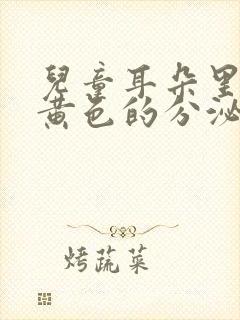 兒童耳朵里
黃色的分泌
烤蔬菜